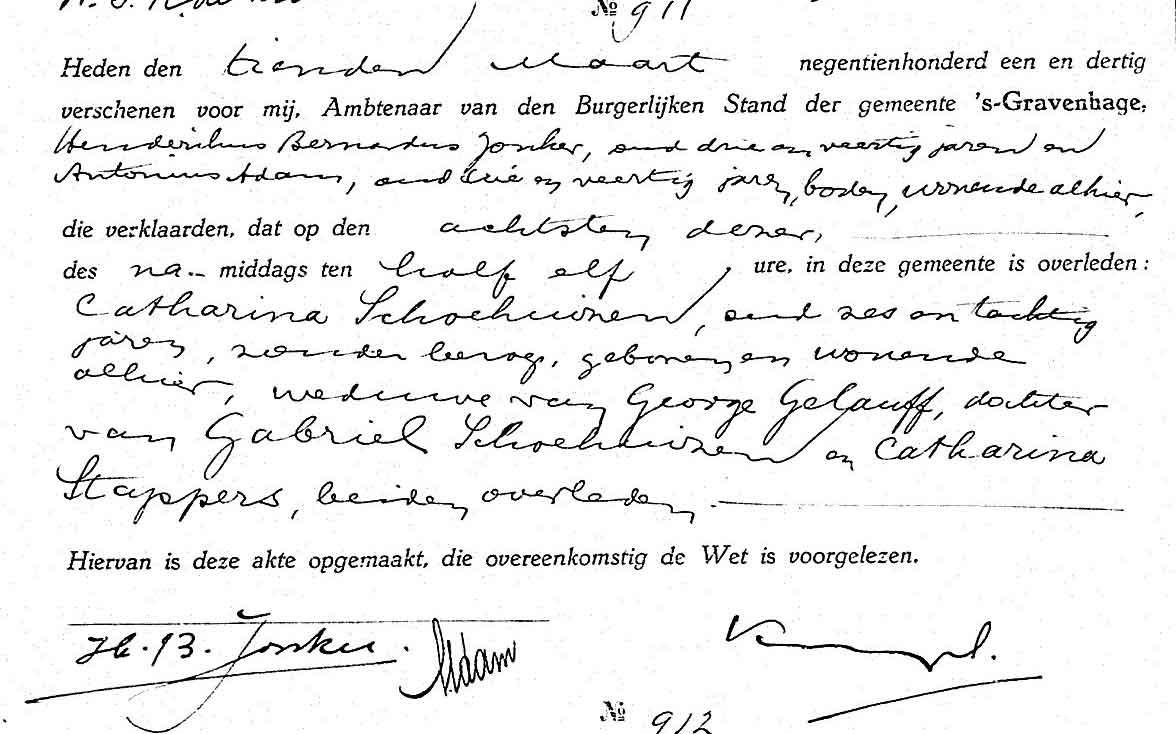 No 911
Heden den tienden Maart negentienhonderd een en dertig
verschenen voor mij, Ambtenaar van den Burgerlijken Stand der gemeente 's-Gravenhage,
Henderikus Bernardus Jonker, oud drie en veertig jaren en
Antonius Adam, oud drie en veertig jaren, boden, wonende alhier,
die verklaarden, dat op den achtsten dezer,
des na- middags ten half elf ure, in deze gemeente is overleden:
Catharina Schoehuizen, oud zes en tachtig
jaren, zonder beroep, geboren en wonende
alhier, weduwe van George Gelauff, dochter
van Gabriel Schoehuizen en Catharina
Stappers, beiden overleden.
Hiervan is deze akte opgemaakt, die overeenkomstig de Wet is voorgelezen.
H. B. Jonker. AAdam
No 912